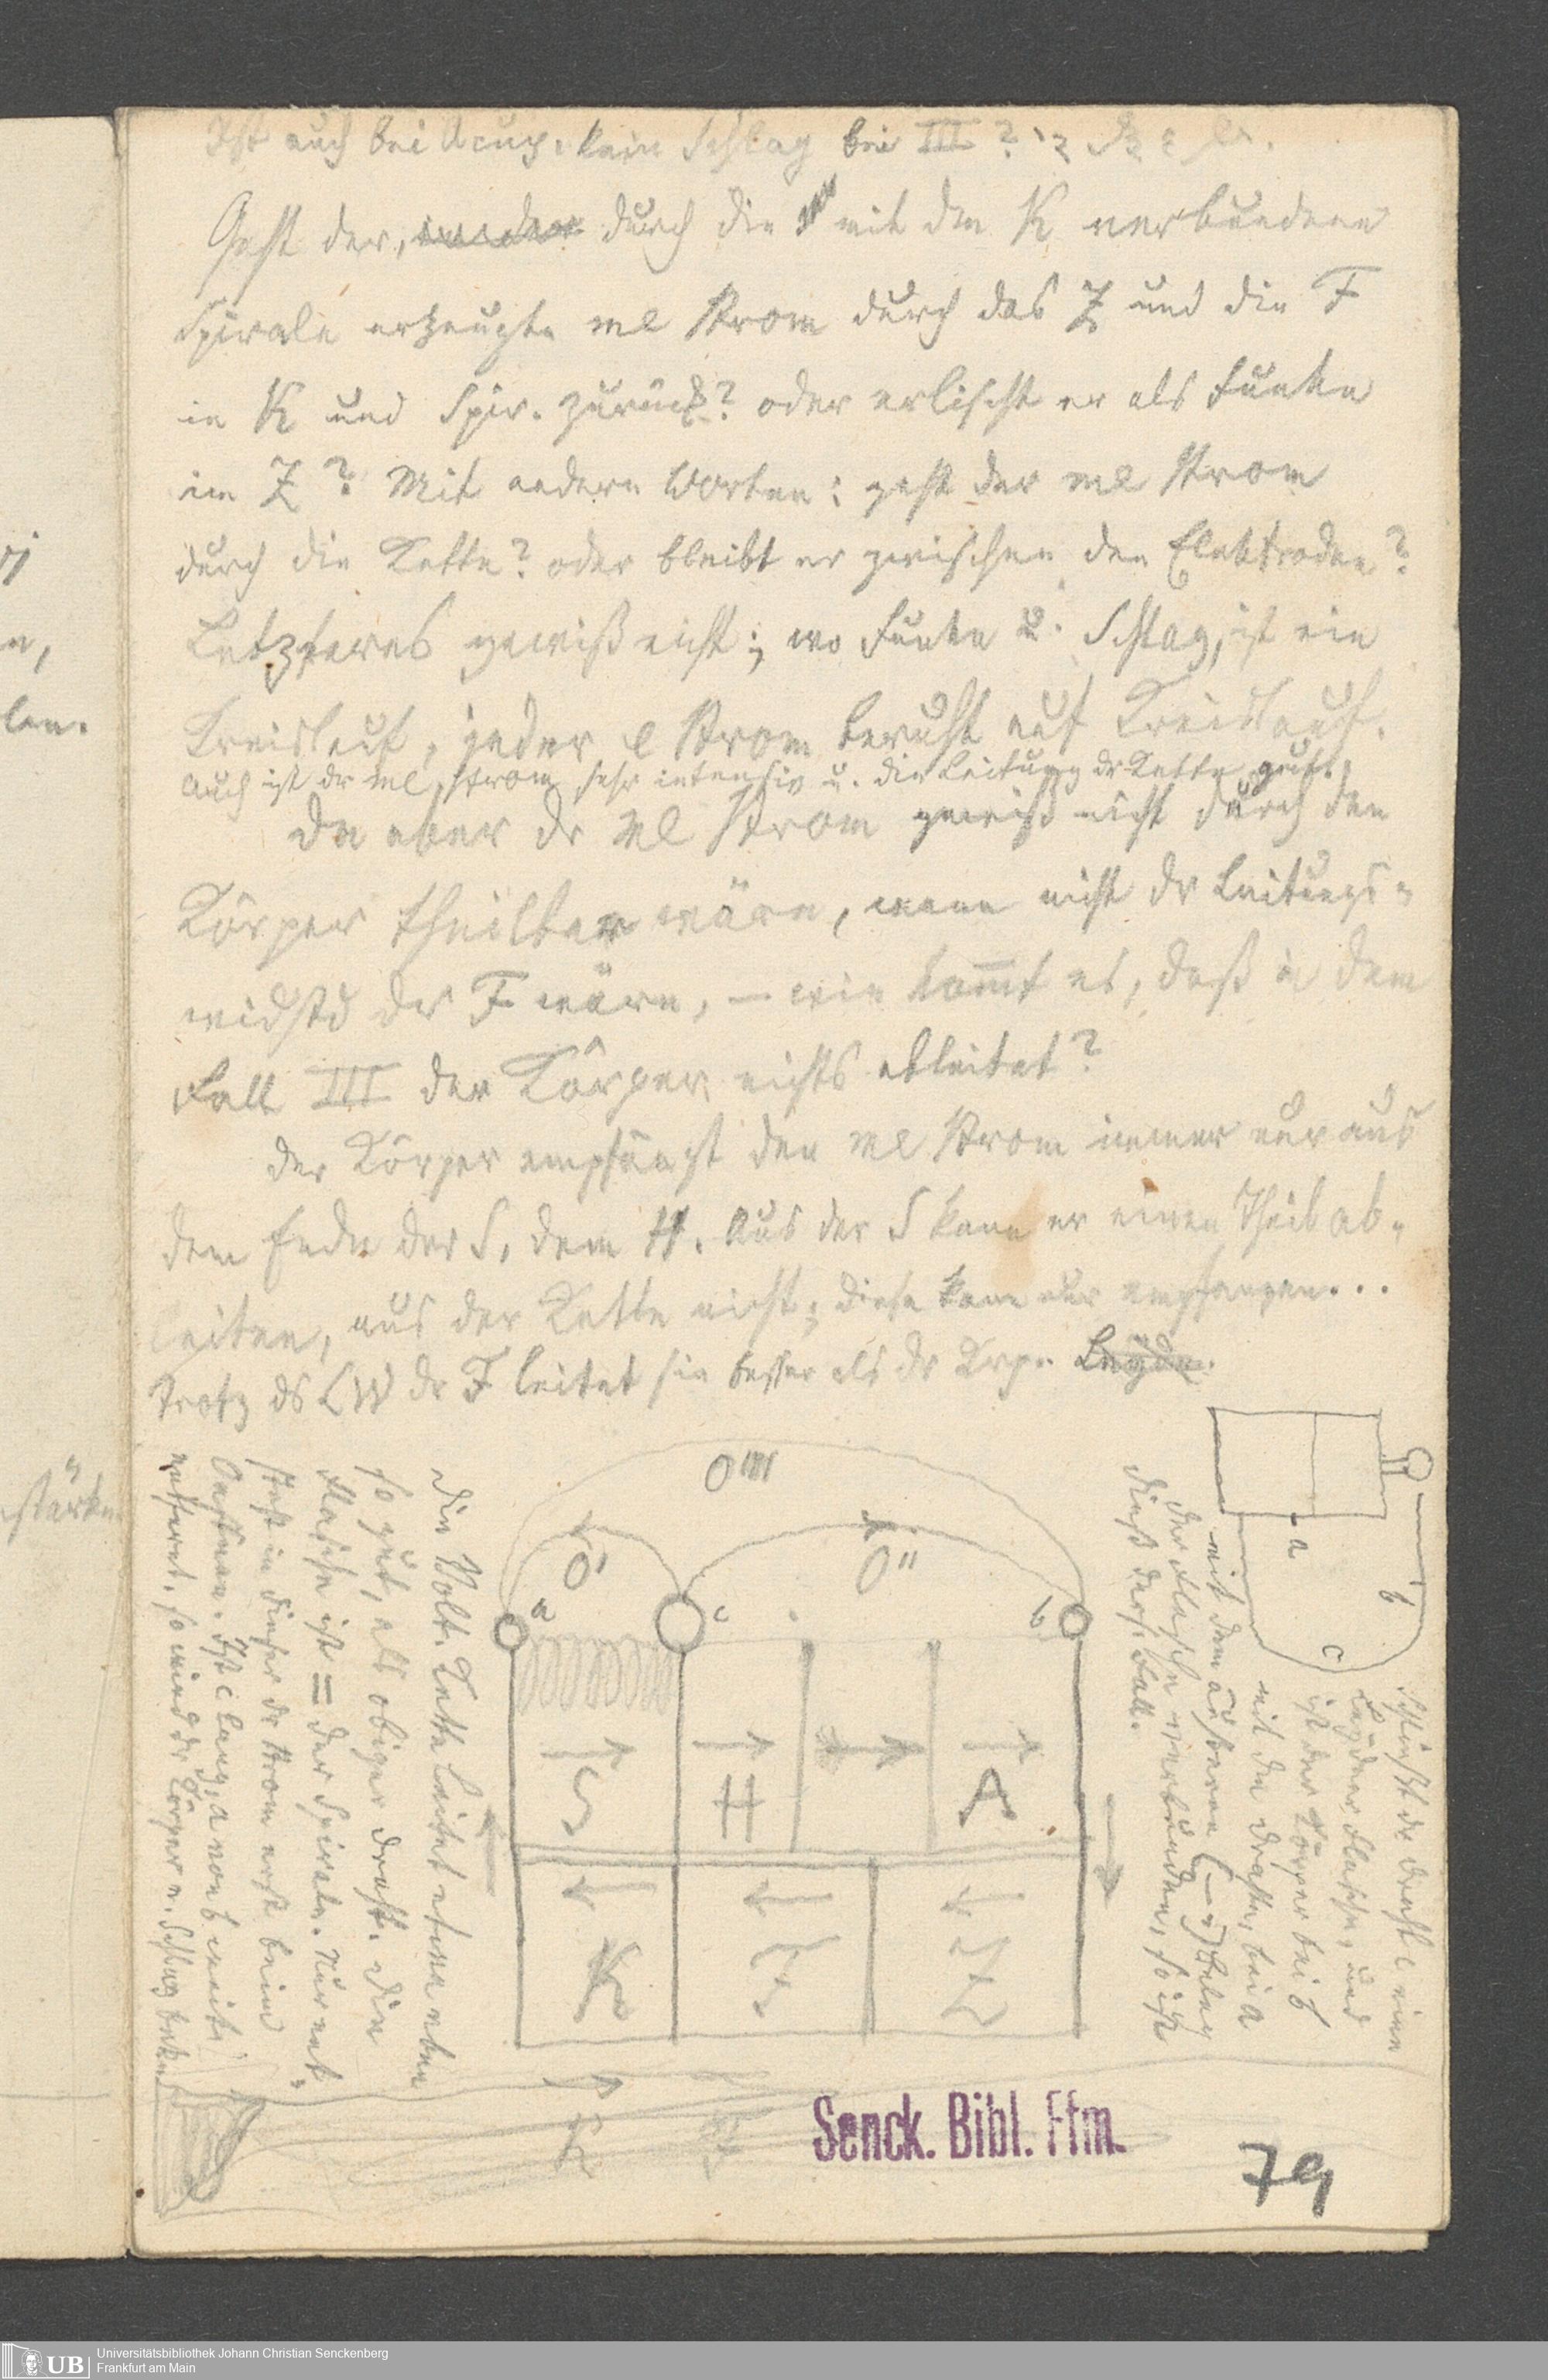 Ist auch bei Acup. kein Schlag bei III ?
Geht der, durch die mit dem K verbundene
Spirale erzeugte me Strom durch das Z und die F
in K und Spir. zurück? oder erlischt er als Funke
im Z ? Mit andern Worten: geht der me Strom
durch die Kette? oder bleibt er zwischen den Elektroden?
Letzteres gewiß nicht; wo Funke u. Schlag, ist ein
Kreislauf, jeder e Strom beruht auf Kreislauf.
Auch ist dr me Strom sehr intensiv u. die Leitung dr Kette gut.
Da aber dr me Strom gewiß nicht durch den
Körper theilbar wäre, wenn nicht dr Leitungs-
widstd der F wäre, – wie kom̅t es, daß in dem
Fall III der Körper nichts ableitet?
Der Körper empfängt den me Strom immer nur aus
dem Ende der S, dem H. Aus der S kann er einen Theil ab-
leiten, aus der Kette nicht; diese kann nur empfangen...
Trotz ds LW dr F leitet sie besser als dr Krp.
O'''
O'
O''
a
c
b
S
H
A
K
F
Z
K
F
a
b
c
Die Volt. Kette leitet etwa eben
so gut, als obiger Draht. Die
Flasche ist = der Spirale. Nur ent-
steht in dieser dr Strom erst beim
Oeffnen. Ist c lang, a von b weit
entfernt, so wird dr Körper e. Schlag bekom
Schließt dr Draht c eine
Leydner Flasche, und
ist der Körper bei b
mit dem Drahte, bei a
mit dem äußeren (–) Beleg
der Flasche verbunden, so ist
dieß ders. Fall.
Senck. Bibl. Ffm.
79
rj
n,
len.
stärke
UB
Universitätsbibliothek Johann Christian Senckenberg
Frankfurt am Main